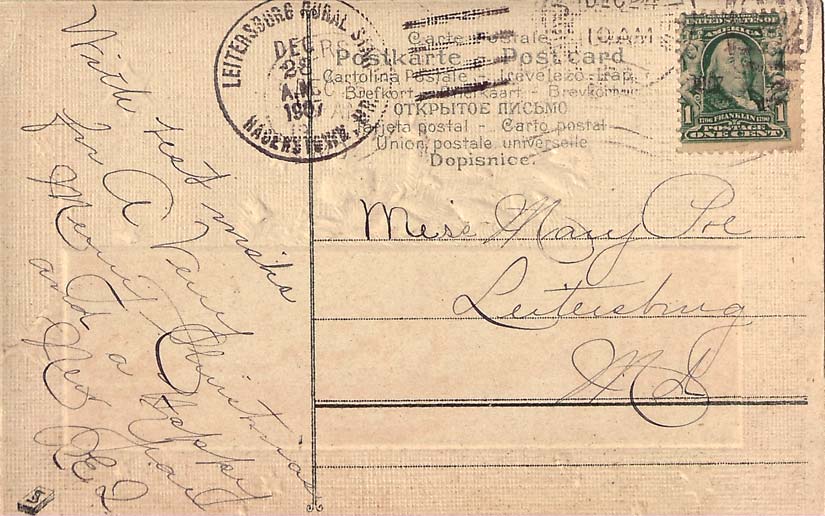 With best wishes
for A Very
Merry Christmas
and a Happy
New Year
LEITERSBURG RURAL STA.
DEC
28
A.M.
1907
HAGERSTOWN, MD.
DEC 24
10 AM
Carte Postale
Postkarte - Postcard
Cartolina Postale - Levelező-Lap
Briefkort - Briefkaart - Brevkort
ОТКРЫТОЕ ПИСЬМО
Tarjeta postal - Carto postal
Union postale universelle
Dopisnice.
UNITED STATES OF AMERICA
1 1706 FRANKLIN 1790 1
POSTAGE
ONE CENT
Miss Mary Poe
Leitersburg
MD